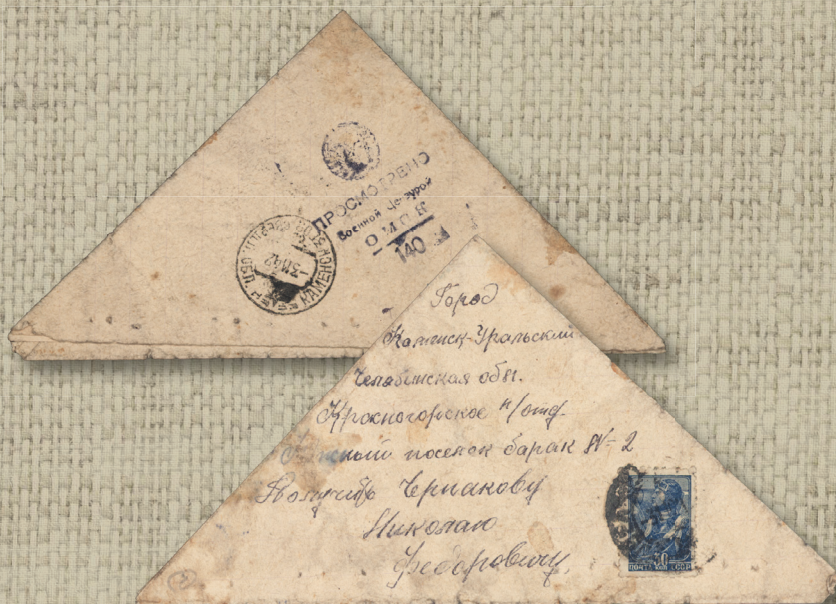 ПРОСМОТРЕНО
Военной Цензурой
ОМСК
140
КАМЕНСК
ОБЛ.
-3 42
Город
Каменск-Уральский
Челябинская обл.
Красногорское п/отд.
поселок барак №-2
Получить Чермакову
Николаю
Федоровичу
30
ПОЧТА СССР